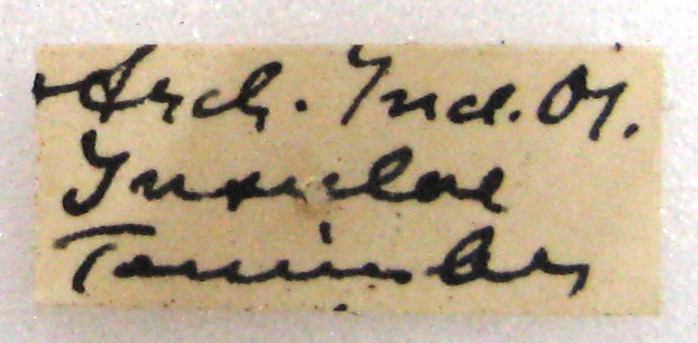 Arch. Ind. Or.
Insulae
Tenimber